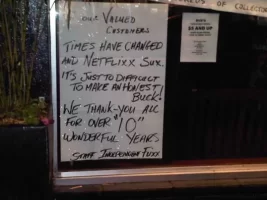 OUR VALUED
CUSTOMERS
TIMES HAVE CHANGED
AND NETFLIXX SUX.
IT'S JUST TO DIFFICULT
TO MAKE AN HONEST
BUCK!
WE THANK-YOU ALL
FOR OVER "10"
WONDERFUL YEARS
STAFF INDEPENDENT FLIXX
OF COLLECTO